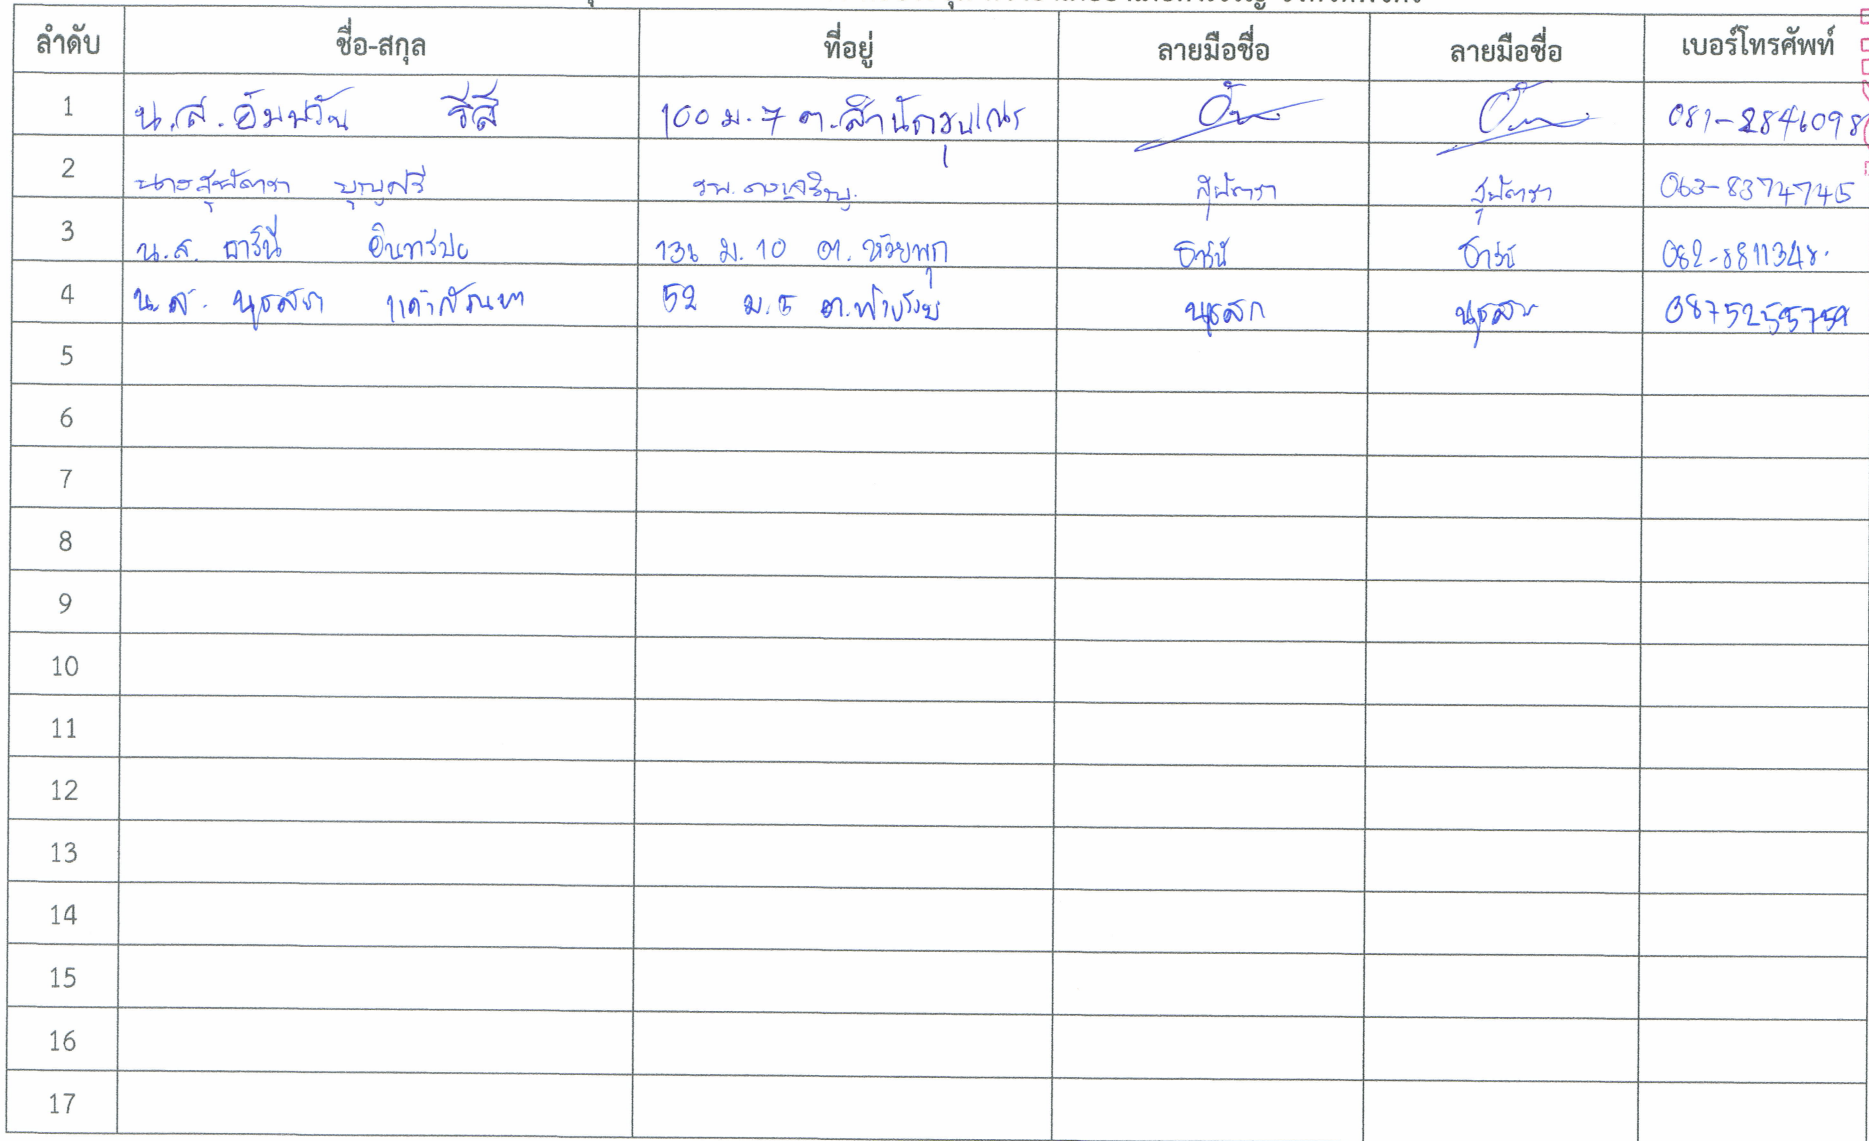 ลำดับ ชื่อ-สกุล ที่อยู่ ลายมือชื่อ ลายมือชื่อ เบอร์โทรศัพท์
1 น.ส.อัมพวัน ชีสี 100 ม.7 ต.สำนักขุนเณร 081-2846098
2 นางสุพัตรา บุญศรี รพ.ดงเจริญ. สุพัตรา สุพัตรา 063-8374745
3 น.ส. ธารินี อินทรปะ 136 ม. 10 ต. ห้วยพุก ธารินี ธารินี 082-8811348.
4 น.ส. นุธสรา 52 ม.5 ต. นุธสรา นุธสรา 0875255759
5
6
7
8
9
10
11
12
13
14
15
16
17